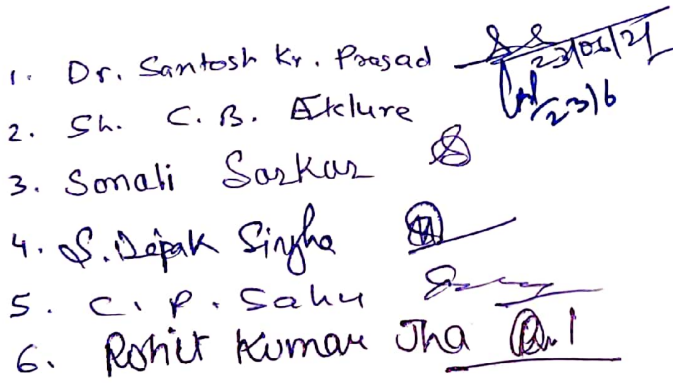 1. Dr. Santosh Kr. Prasad 23/06/21
2. Sh. C. B. Eklure 23/6
3. Sonali Sarkar
4. S. Depak Singha
5. C. P. Sahu
6. Rohit Kumar Jha